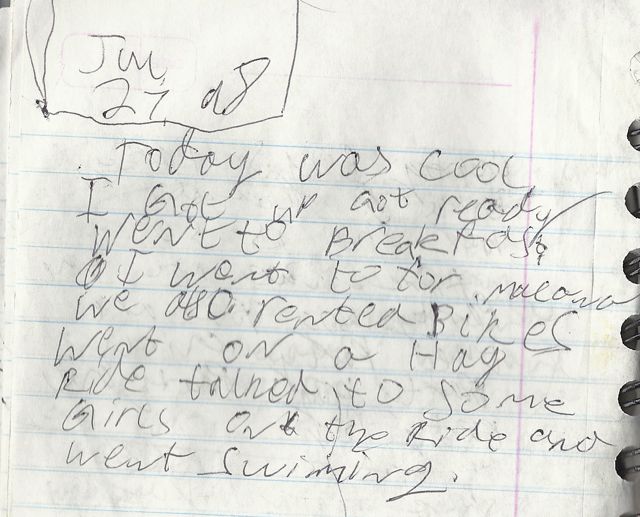 Jun
27, 08
Today was cool
I Got up got ready
went to Breakfast
I went to for
we also rented Bikes
went on a Hay
Ride talked to some
Girls on the Ride and
went swiming.